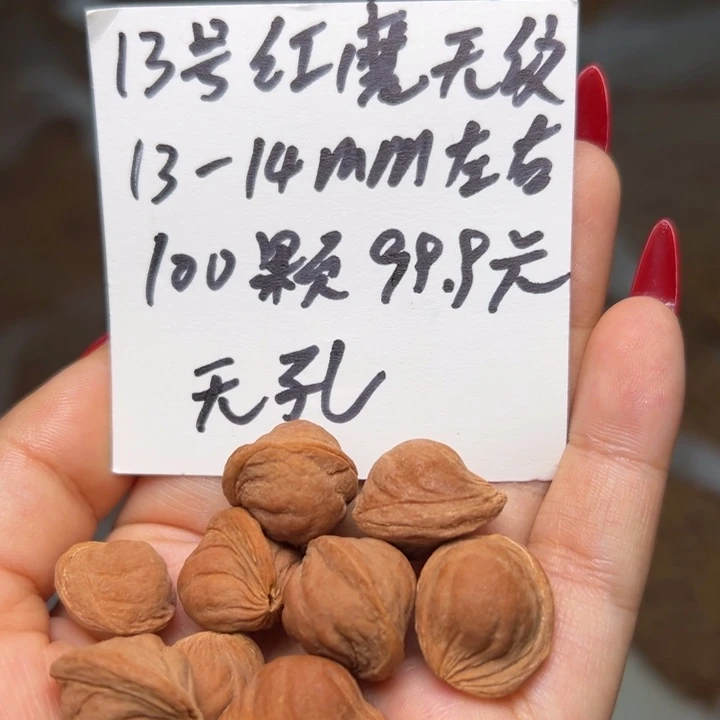 13号红魔无纹
13-14mm左右
100颗99.9元
无孔